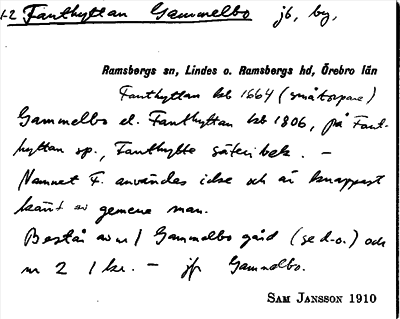 1-2 Fanthyttan Gammelbo jb, by,
Ramsbergs sn, Lindes o. Ramsbergs hd, Örebro län
Fanthyttan kb 1664 (småtorpare)
Gammelbo el. Fanthyttan kb 1806, på Fant-
hyttan sp., Fanthytte säteri bek. –
Namnet F. användes icke och är knappast
känt av gemene man.
Består av nr 1 Gammelbo gård (se d.o.) och
nr 2 1 kr. – jfr Gammelbo.
SAM JANSSON 1910